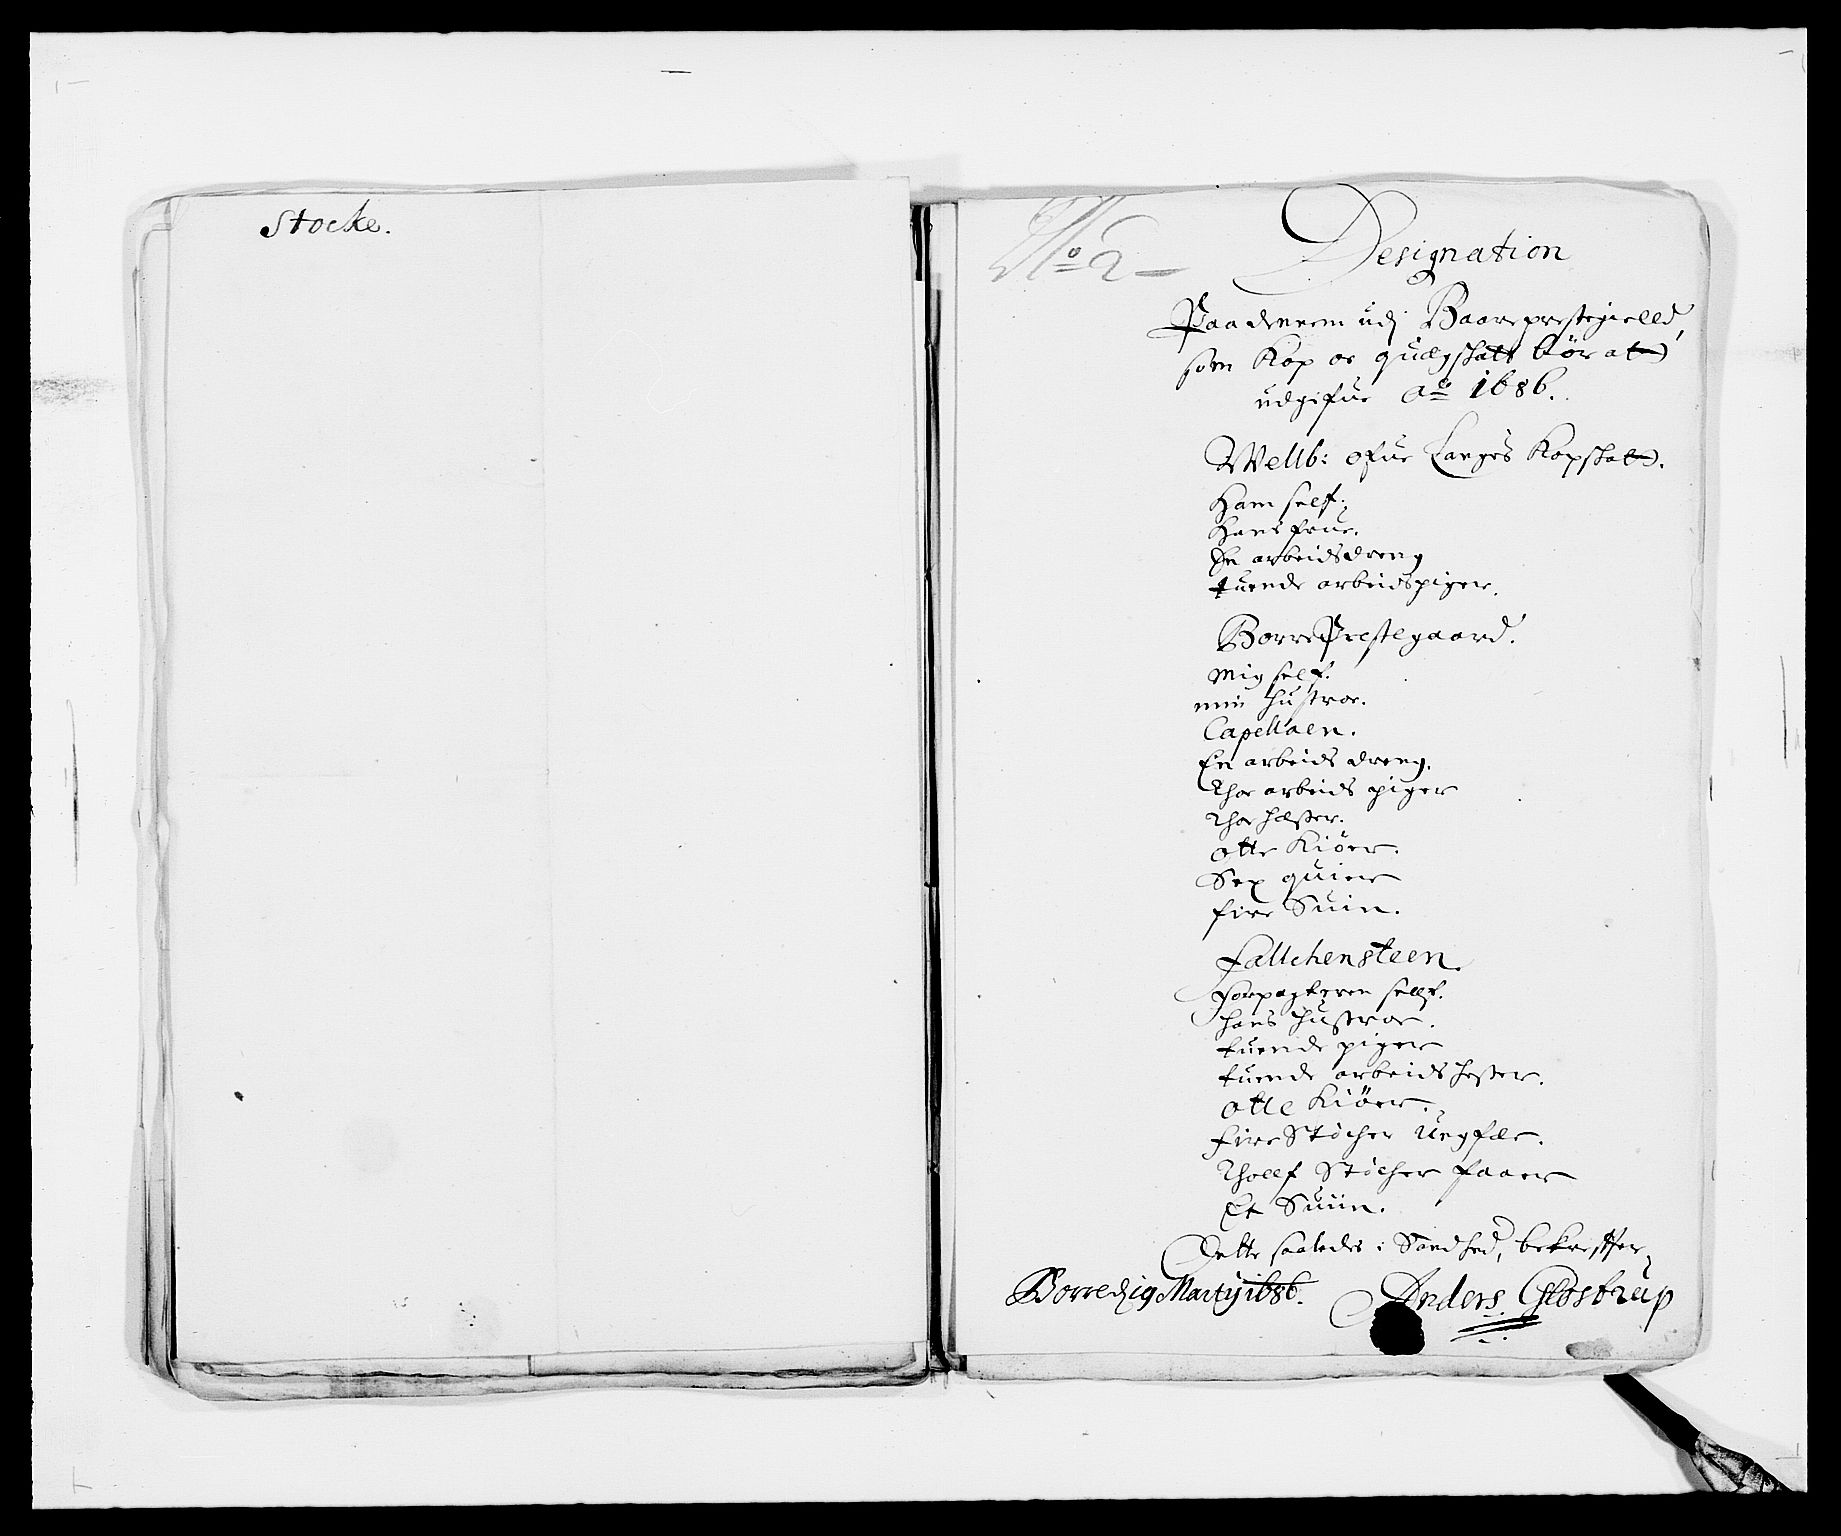 Stocke.
No 2
Designation
Paa dennem udj Baareprestegield,
som Kop oc quægskatt bör at
udgifue Ao 1686.
Wellb: Ofue Langes Kopskat.
Ham self.
Hans frue.
En arbeidsdreng
tuende arbeidspiger.
Borre Prestegaard.
Mig self.
min hustroe.
Capellaen.
En arbeids dreng.
Thoe arbeids piger
Thoe hæster.
Otte Kiöer.
Sex quier
fire Suin.
Fallchensteen.
Forpagteren sellf.
hans hustroe.
tuende piger
tuende arbeids hester.
Otte Kiöer.
Fire Stöcher Ungfæe.
Thollf Stöcher faaer
Et Suiin.
Dette saaledis i Sandhed, bekrefter
Borre dj 19 Martij 1686. Anders Glostrup